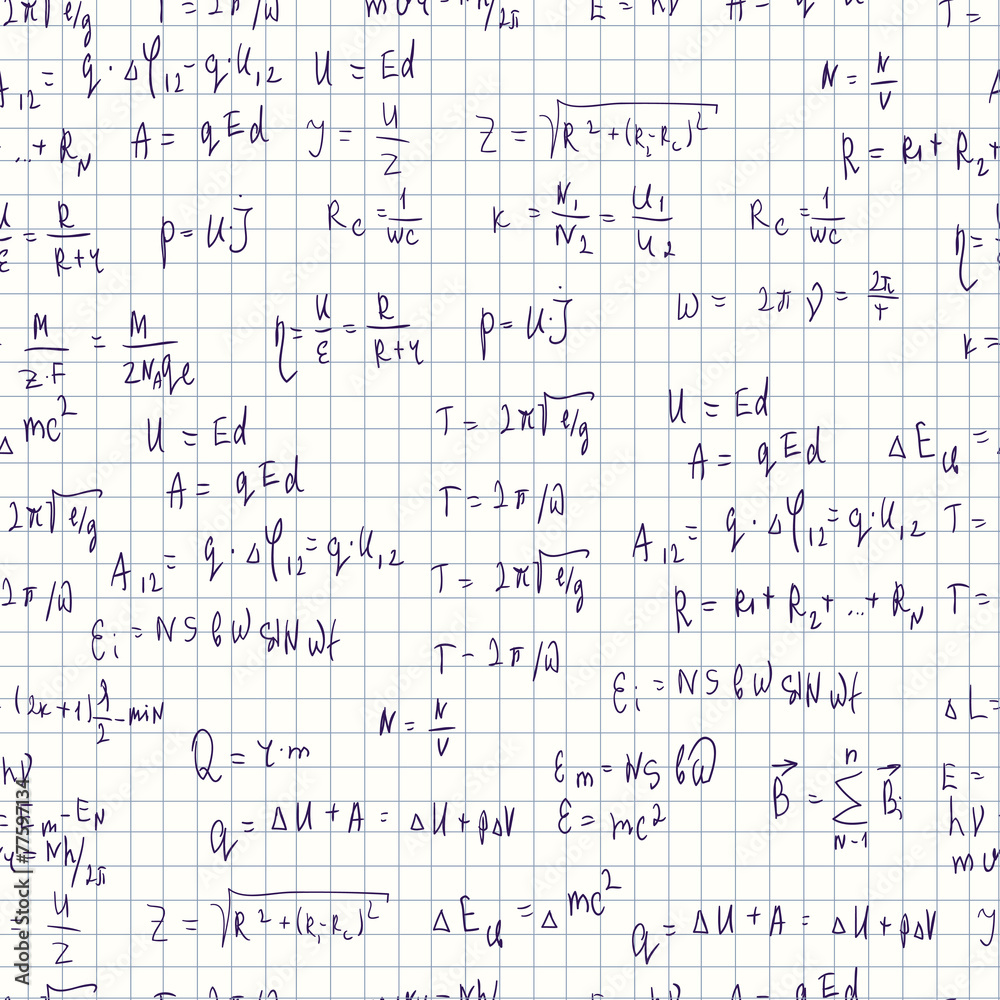 2π√e/g T = 2π/ω
A₁₂ = q · Δφ₁₂ - q·U₁₂ U = Ed N = N/V
...+ R_N A = qEd y = U/Z Z = √R² + (R_L-R_C)² R = R₁+ R₂+
U/ε = R/R+r p = U·j R_C = 1/WC K = N₁/N₂ = U₁/U₂ R_C = 1/WC η =
M/Z·F = M/2N_Aqe η = U/ε = R/R+r p = U·j W = 2πν = 2π/T K =
Δ mc² U = Ed T = 2π√e/g U = Ed
A = qEd A = qEd ΔE_u =
2π√e/g T = 2π/ω
A₁₂ = q · Δφ₁₂ = q·U₁₂ A₁₂ = q · Δφ₁₂ = q·U₁₂ T =
2π/ω T = 2π√e/g R = R₁+ R₂+ ...+ R_N T =
ε_i = NSBW SIN Wt T - 2π/ω
(2k+1)λ/2 - min N = N/V ε_i = NSBW SIN Wt ΔL=
hν Q = r·m ε_m = NSBω B⃗ = Σ B⃗_i n N-1 E =
= E_m - E_N q = ΔU + A = ΔU + pΔV ε = mc² hν
= Nh/2π mv
U/Z Z = √R² + (R_L-R_C)² ΔE_u = Δ mc² q = ΔU + A = ΔU + pΔV y
qEd
Adobe Stock | #77597134